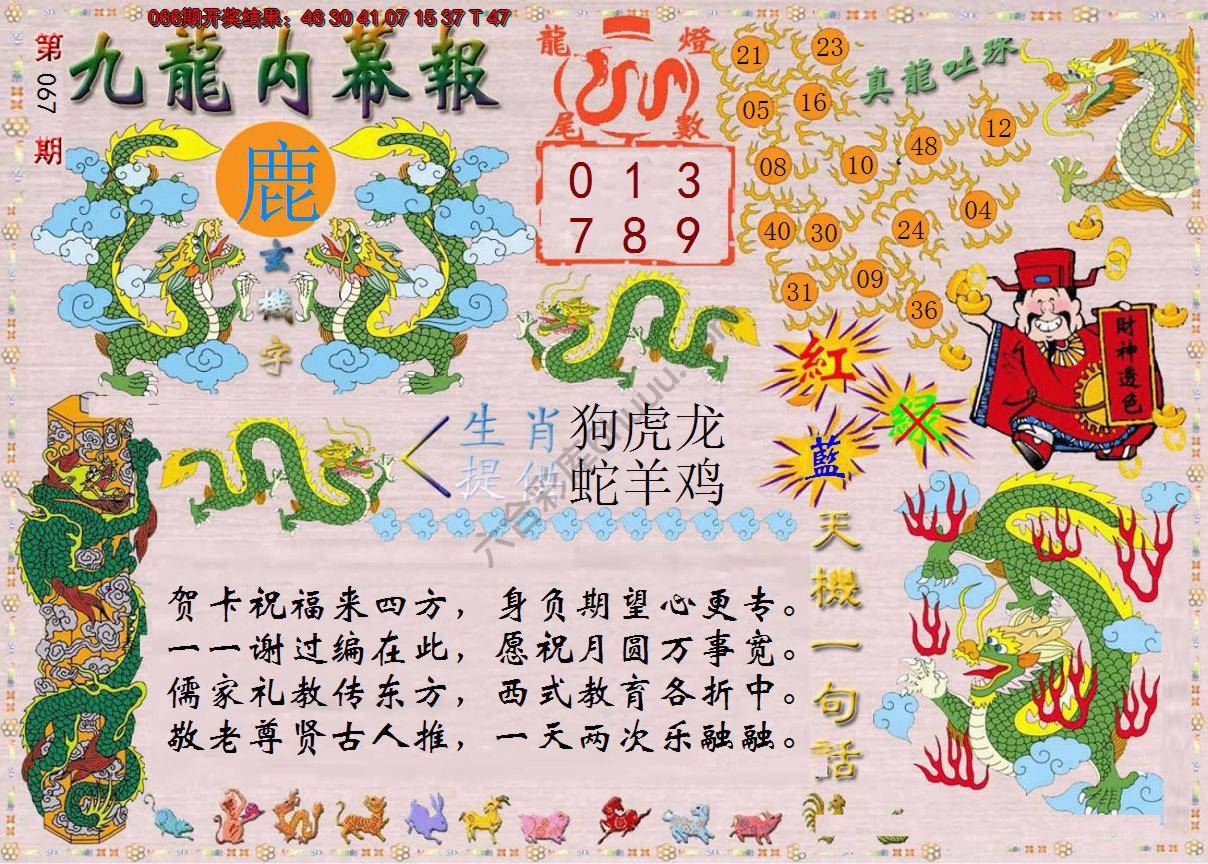 066期开奖结果：46 30 41 07 15 37 T 47
第067期
九龍内幕報
鹿
玄機字
龍燈
尾數
0 1 3
7 8 9
真龍吐珠
21 23
05 16
08 10 48 12
40 30 24 04
31 09 36
財神透色
紅
绿
藍
生肖 狗虎龙
提供 蛇羊鸡
天機一句話
贺卡祝福来四方，身负期望心更专。
一一谢过编在此，愿祝月圆万事宽。
儒家礼教传东方，西式教育各折中。
敬老尊贤古人推，一天两次乐融融。